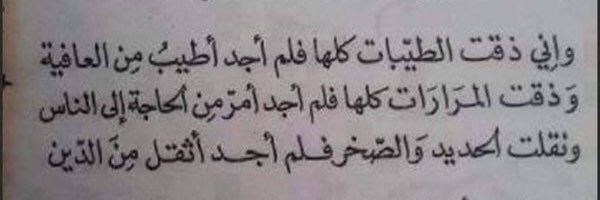 وإني ذقت الطيّبات كلها فلم أجد أطيبُ مِن العافية
وَذقت المرَارَات كلها فلم أجد أمرّ مِن الحاجة إلى الناس
ونقلت الحديد وَالصّخر فلم أجد أثقل مِنَ الدّين